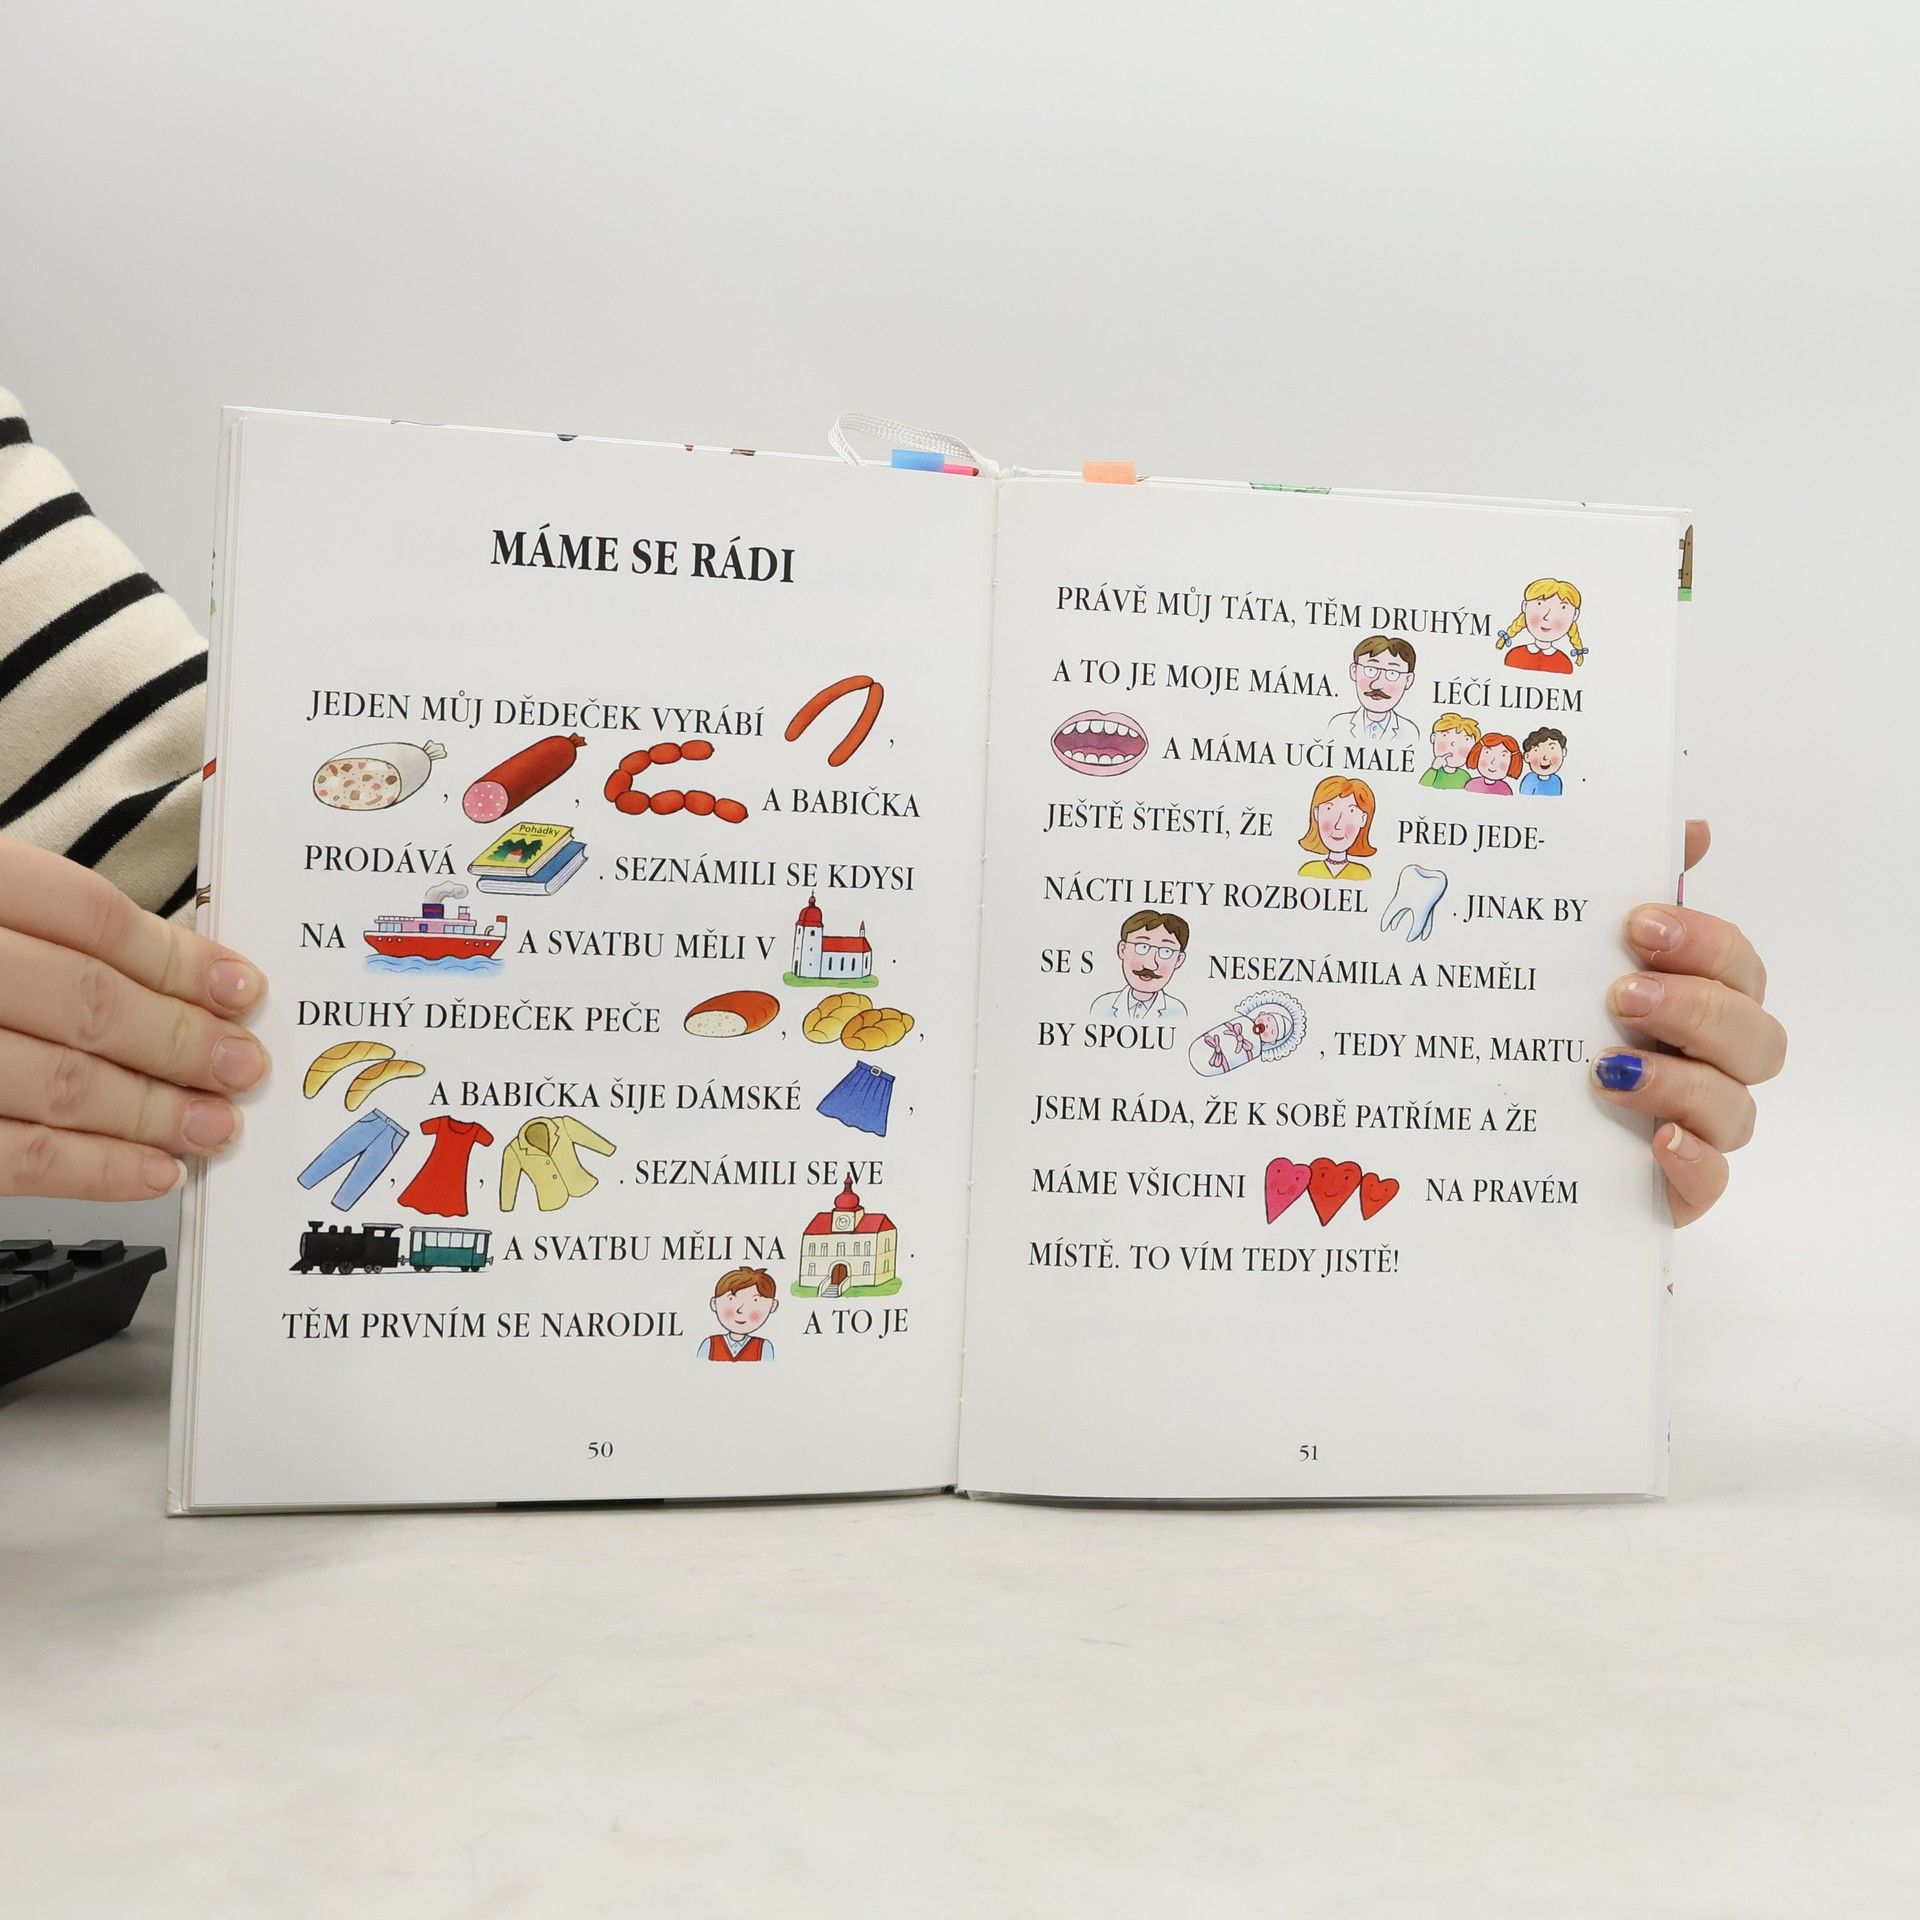 MÁME SE RÁDI
JEDEN MŮJ DĚDEČEK VYRÁBÍ ,
, , A BABIČKA
PRODÁVÁ Pohádky . SEZNÁMILI SE KDYSI
NA A SVATBU MĚLI V .
DRUHÝ DĚDEČEK PEČE , ,
A BABIČKA ŠIJE DÁMSKÉ ,
, , . SEZNÁMILI SE VE
A SVATBU MĚLI NA .
TĚM PRVNÍM SE NARODIL A TO JE
50
PRÁVĚ MŮJ TÁTA, TĚM DRUHÝM
A TO JE MOJE MÁMA. LÉČÍ LIDEM
A MÁMA UČÍ MALÉ .
JEŠTĚ ŠTĚSTÍ, ŽE PŘED JEDE-
NÁCTI LETY ROZBOLEL . JINAK BY
SE S NESEZNÁMILA A NEMĚLI
BY SPOLU , TEDY MNE, MARTU.
JSEM RÁDA, ŽE K SOBĚ PATŘÍME A ŽE
MÁME VŠICHNI NA PRAVÉM
MÍSTĚ. TO VÍM TEDY JISTĚ!
51